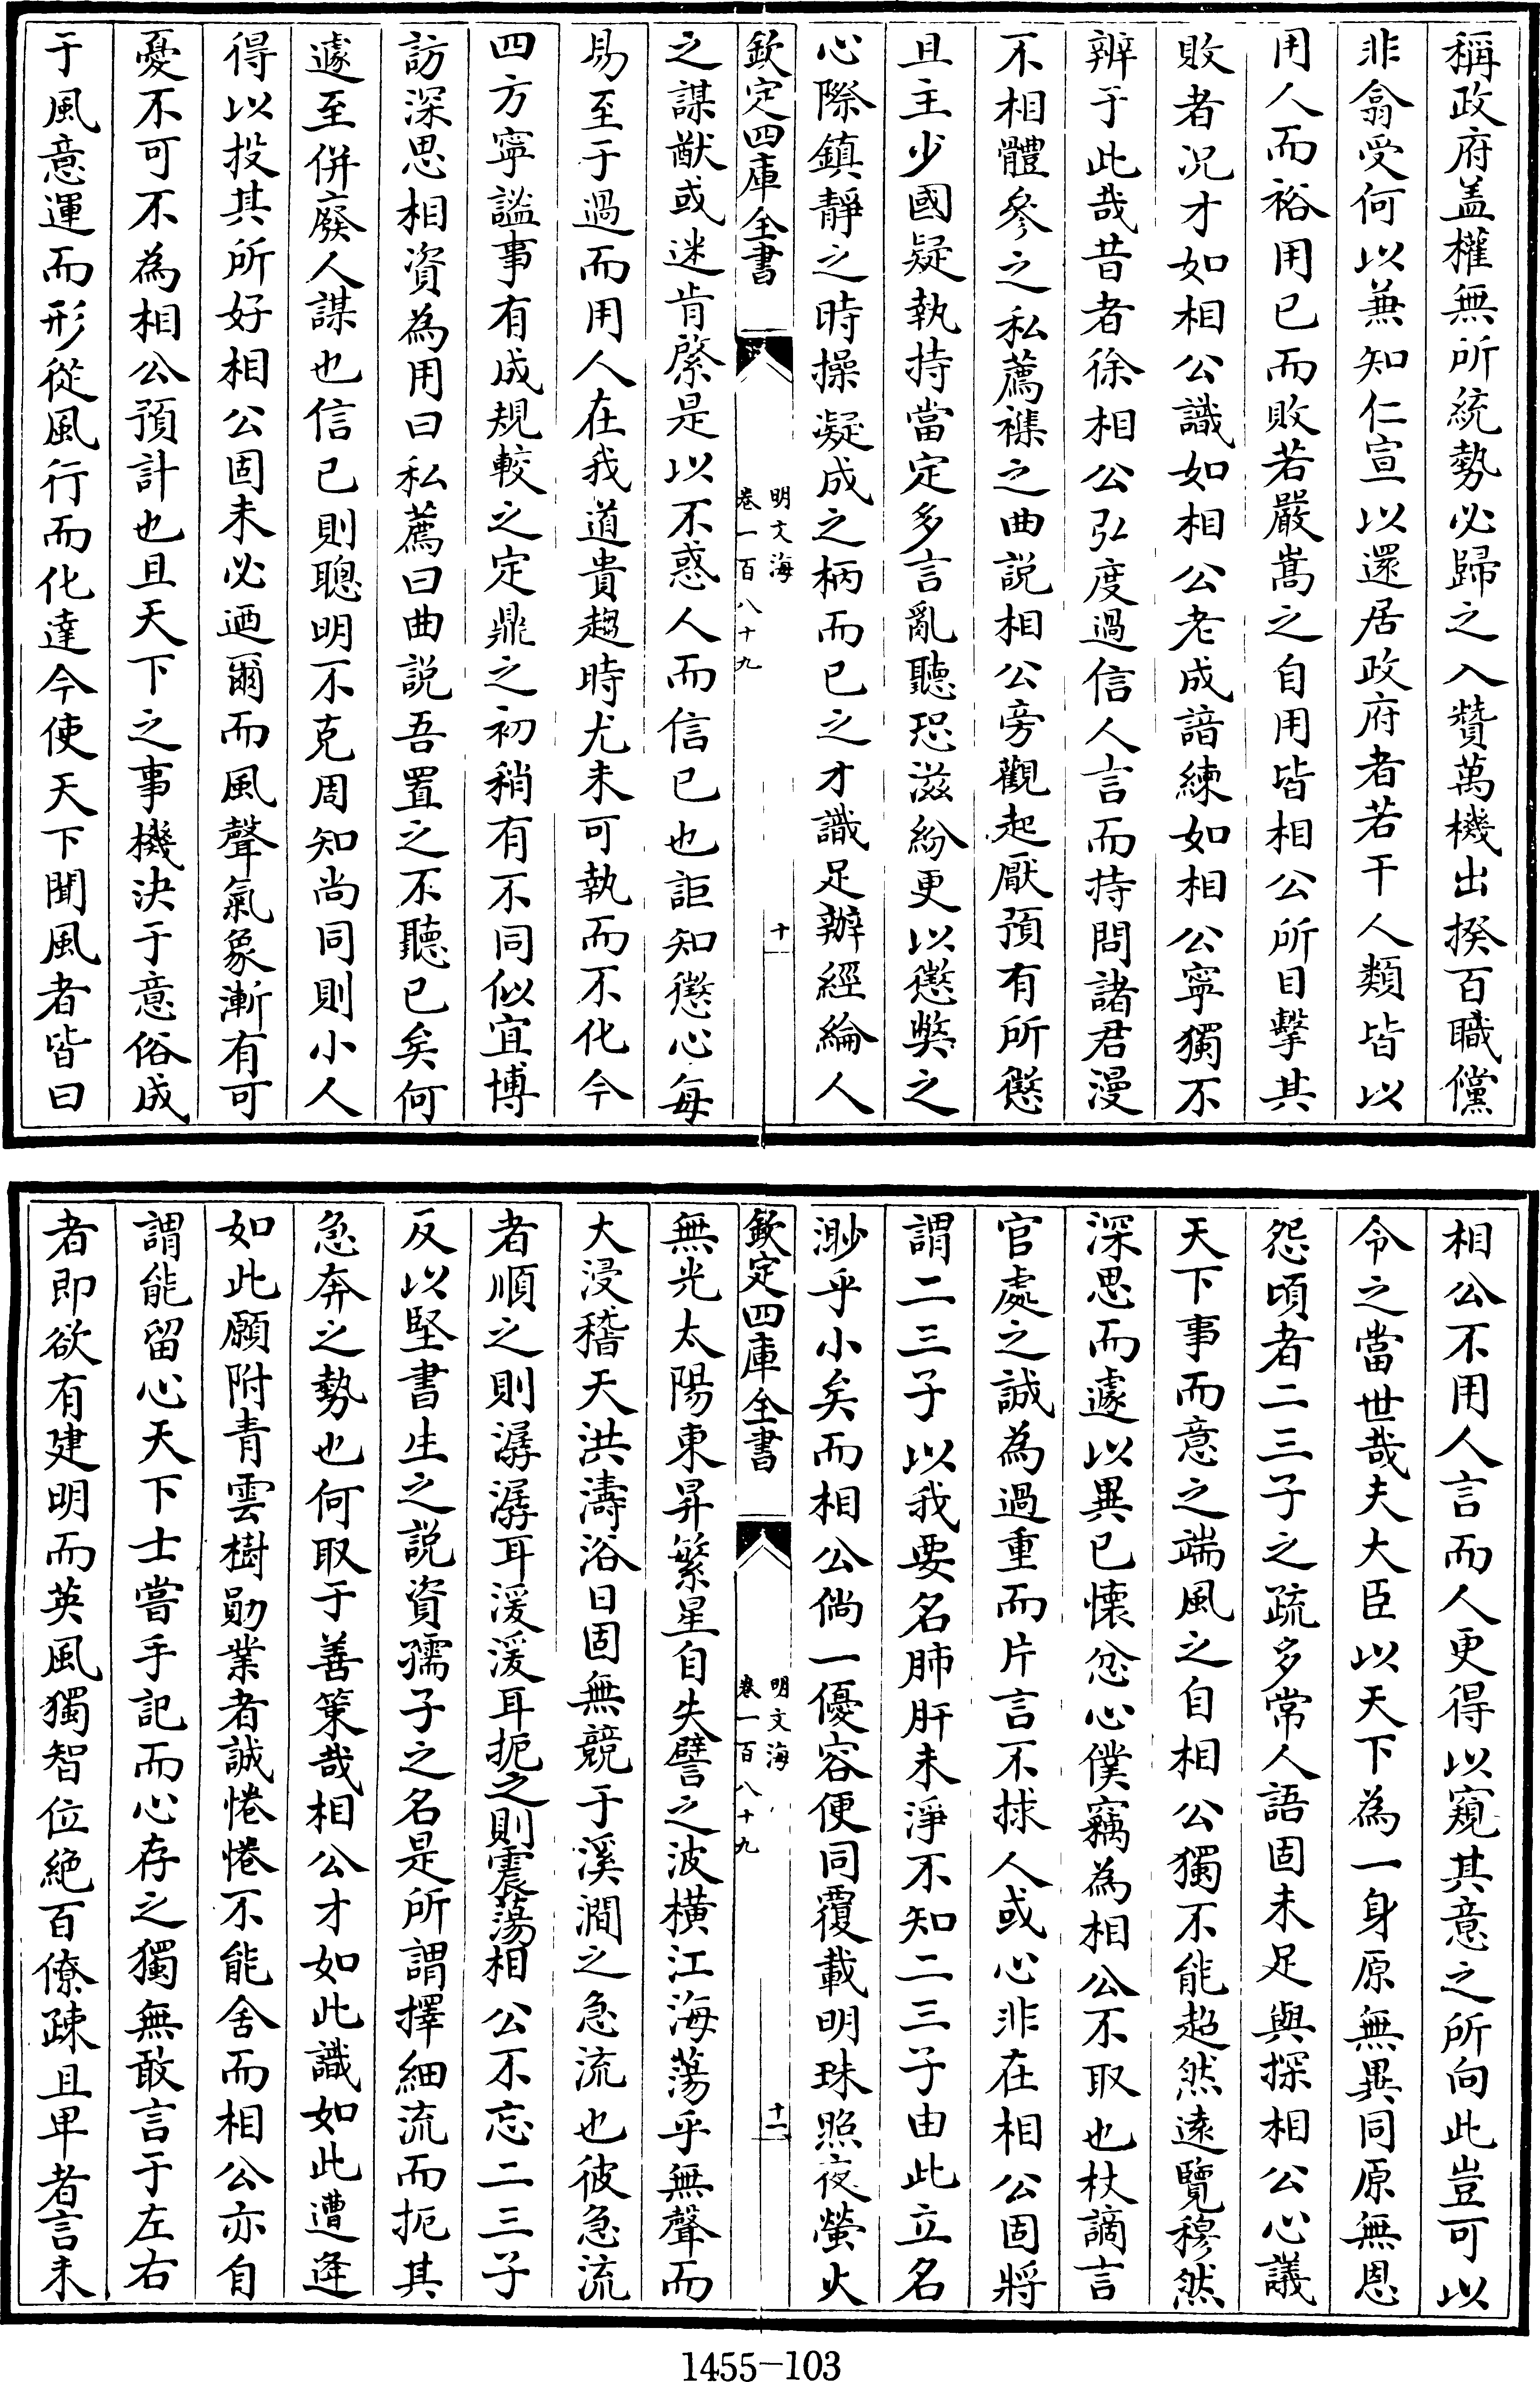 稱政府盖權無所統勢必歸之入贊萬機出揆百職儻
非翕受何以兼知仁宣以還居政府者若干人類皆以
用人而裕用已而敗若嚴嵩之自用皆相公所目擊其
敗者况才如相公識如相公老成諳練如相公寧獨不
辨于此哉昔者徐相公弘度過信人言而持問諸君漫
不相體參之私薦襍之曲説相公旁觀起厭預有所懲
且主少國疑執持當定多言亂聽恐滋紛更以懲獘之
心際鎮靜之時操凝成之柄而已之才識足辦經綸人
欽定四庫全書
明文海
卷一百八十九
十
之謀猷或迷肯綮是以不惑人而信已也詎知懲心每
易至于過而用人在我道貴趨時尤未可執而不化今
四方寧謐事有成規較之定鼎之初稍有不同似宜博
訪深思相資為用曰私薦曰曲説吾置之不聽已矣何
遽至併廢人謀也信已則聰明不克周知尚同則小人
得以投其所好相公固未必迺爾而風聲氣象漸有可
憂不可不為相公預計也且天下之事機決于意俗成
于風意運而形從風行而化達今使天下聞風者皆曰
相公不用人言而人更得以窺其意之所向此豈可以
令之當世哉夫大臣以天下為一身原無異同原無恩
怨頃者二三子之疏多常人語固未足與探相公心議
天下事而意之端風之自相公獨不能超然遠覽穆然
深思而遽以異已懷忿心僕竊為相公不取也杖謫言
官處之誠為過重而片言不捄人或心非在相公固將
謂二三子以我要名肺肝未淨不知二三子由此立名
渺乎小矣而相公倘一優容便同覆載明珠照夜螢火
欽定四庫全書
明文海
卷一百八十九
十一
無光太陽東昇繁星自失譬之波横江海蕩乎無聲而
大浸稽天洪濤浴日固無競于溪澗之急流也彼急流
者順之則潺潺耳湲湲耳扼之則震蕩相公不忘二三子
反以堅書生之説資孺子之名是所謂擇細流而扼其
急奔之勢也何取于善策哉相公才如此識如此遭逢
如此願附青雲樹勛業者誠惓惓不能舍而相公亦自
謂能留心天下士嘗手記而心存之獨無敢言于左右
者即欲有建明而英風獨智位絶百僚疎且卑者言未
1455—103